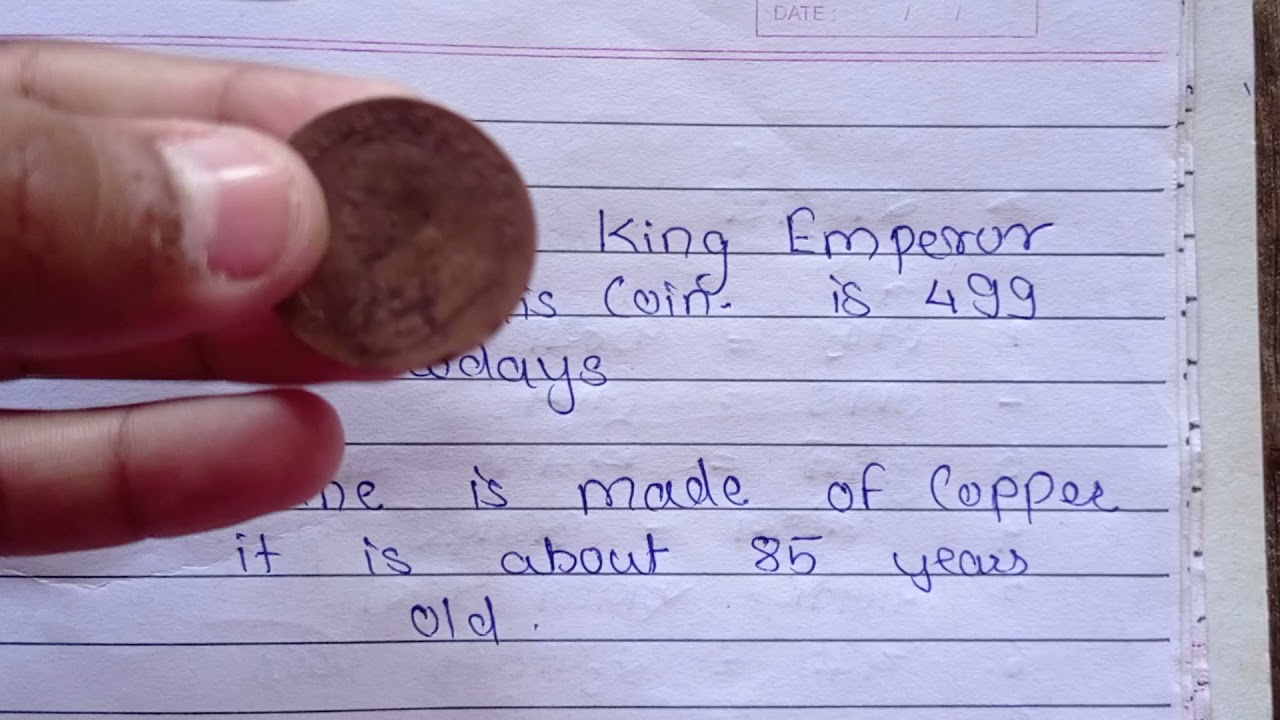 DATE : / /
King Emperor
is Coin. is 499
wdays
ne is made of Copper
it is about 85 years
old.